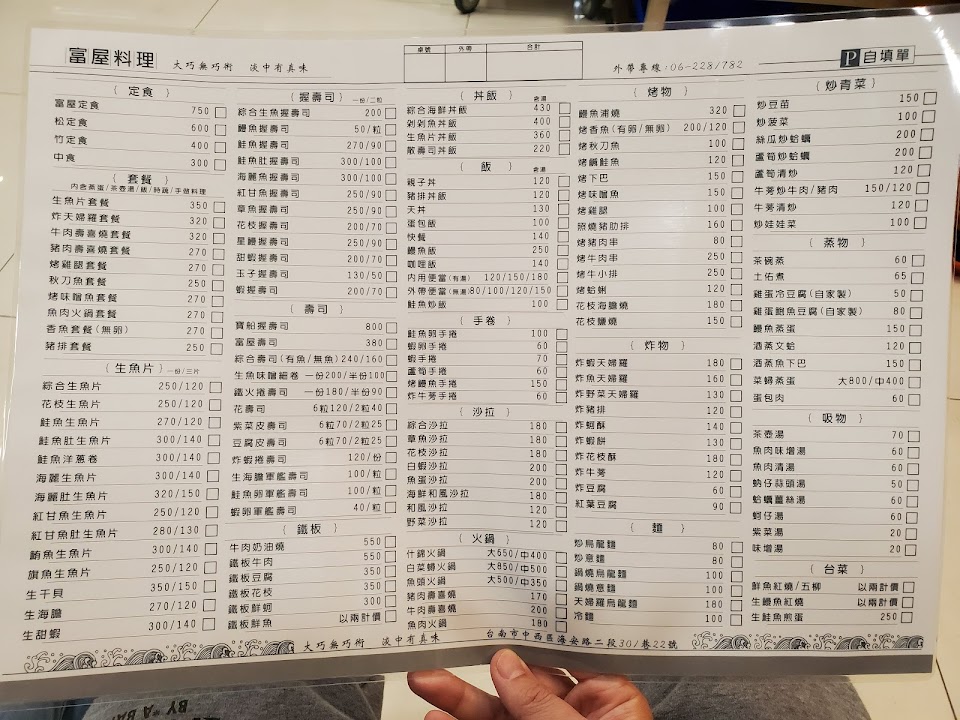 富屋料理
大巧無巧術 淡中有真味
桌號 外帶 合計
外帶專線:06-228/782
P 自填單
{ 定食 }
富屋定食 750
松定食 600
竹定食 400
中食 300
{ 套餐 }
內含蒸蛋/茶壺湯/飯/時蔬/手做料理
生魚片套餐 350
炸天婦羅套餐 320
牛肉壽喜燒套餐 320
豬肉壽喜燒套餐 270
烤雞腿套餐 270
秋刀魚套餐 250
烤味噌魚套餐 270
魚肉火鍋套餐 270
香魚套餐(無卵) 270
豬排套餐 250
{ 生魚片 } 一份/三片
綜合生魚片 250/120
花枝生魚片 250/120
鮭魚生魚片 270/120
鮭魚肚生魚片 300/140
鮭魚洋蔥卷 300/140
海麗生魚片 300/140
海麗肚生魚片 320/150
紅甘魚生魚片 250/120
紅甘魚肚生魚片 280/130
鮪魚生魚片 300/140
旗魚生魚片 250/120
生干貝 350/150
生海膽 270/120
生甜蝦 300/140
{ 握壽司 } 一份/二粒
綜合生魚握壽司 200
鰻魚握壽司 50/粒
鮭魚握壽司 270/90
鮭魚肚握壽司 300/100
海麗魚握壽司 300/100
紅甘魚握壽司 250/90
章魚握壽司 250/90
花枝握壽司 200/70
星鰻握壽司 250/90
甜蝦握壽司 200/70
玉子握壽司 130/50
蝦握壽司 200/70
{ 壽司 }
寶船握壽司 800
富屋壽司 380
綜合壽司(有魚/無魚) 240/160
生魚味噌細卷 一份200/半份100
鐵火捲壽司 一份180/半份90
花壽司 6粒120/2粒40
紫菜皮壽司 6粒70/2粒25
豆腐皮壽司 6粒70/2粒25
炸蝦捲壽司 120/份
生海膽軍艦壽司 100/粒
鮭魚卵軍艦壽司 100/粒
蝦卵軍艦壽司 40/粒
{ 鐵板 }
牛肉奶油燒 550
鐵板牛肉 550
鐵板豆腐 350
鐵板花枝 350
鐵板鮮蚵 300
鐵板鮮魚 以兩計價
{ 丼飯 } 含湯
綜合海鮮丼飯 430
剁剁魚丼飯 400
生魚片丼飯 360
散壽司丼飯 220
{ 飯 } 含湯
親子丼 120
豬排丼飯 120
天丼 130
蛋包飯 100
快餐 140
鰻魚飯 250
咖哩飯 140
內用便當(有湯) 120/150/180
外帶便當(無湯) 80/100/120/150
鮭魚炒飯 100
{ 手卷 }
鮭魚卵手捲 100
蝦卵手捲 60
蝦手捲 70
蘆筍手捲 60
烤鰻魚手捲 150
炸牛蒡手捲 60
{ 沙拉 }
綜合沙拉 180
章魚沙拉 180
花枝沙拉 180
白蝦沙拉 200
魚蛋沙拉 200
海鮮和風沙拉 180
和風沙拉 120
野菜沙拉 120
{ 火鍋 }
什錦火鍋 大650/中400
白菜蟳火鍋 大850/中500
魚頭火鍋 大500/中350
豬肉壽喜燒 170
牛肉壽喜燒 200
魚肉火鍋 180
{ 烤物 }
鰻魚浦燒 320
烤香魚(有卵/無卵) 200/120
烤秋刀魚 100
烤鹹鮭魚 120
烤下巴 150
烤味噌魚 150
烤雞腿 100
照燒豬肋排 160
烤豬肉串 80
烤牛肉串 250
烤牛小排 250
烤蛤蜊 120
花枝海膽燒 180
花枝鹽燒 150
{ 炸物 }
炸蝦天婦羅 180
炸魚天婦羅 160
炸野菜天婦羅 130
炸豬排 120
炸蚵酥 140
炸蝦餅 130
炸花枝酥 180
炸牛蒡 120
炸豆腐 60
紅葉豆腐 90
{ 麵 }
炒烏龍麵 80
炒意麵 80
鍋燒烏龍麵 100
鍋燒意麵 100
天婦羅烏龍麵 180
冷麵 100
{ 炒青菜 }
炒豆苗 150
炒菠菜 100
絲瓜炒蛤蠣 200
蘆筍炒蛤蠣 200
蘆筍清炒 120
牛蒡炒牛肉/豬肉 150/120
牛蒡清炒 120
炒娃娃菜 100
{ 蒸物 }
茶碗蒸 60
土佑煮 65
雞蛋冷豆腐(自家製) 50
雞蛋鮑魚豆腐(自家製) 80
鰻魚蒸蛋 150
酒蒸文蛤 120
酒蒸魚下巴 150
菜蟳蒸蛋 大800/中400
蛋包肉 60
{ 吸物 }
茶壺湯 70
魚肉味增湯 60
魚肉清湯 60
蚋仔蒜頭湯 50
蛤蠣薑絲湯 60
蚵仔湯 60
紫菜湯 20
味增湯 20
{ 台菜 }
鮮魚紅燒/五柳 以兩計價
生鰻魚紅燒 以兩計價
生鮭魚煎蛋 250
大巧無巧術 淡中有真味 台南市中西區海安路二段30/巷22號
BY "A BA